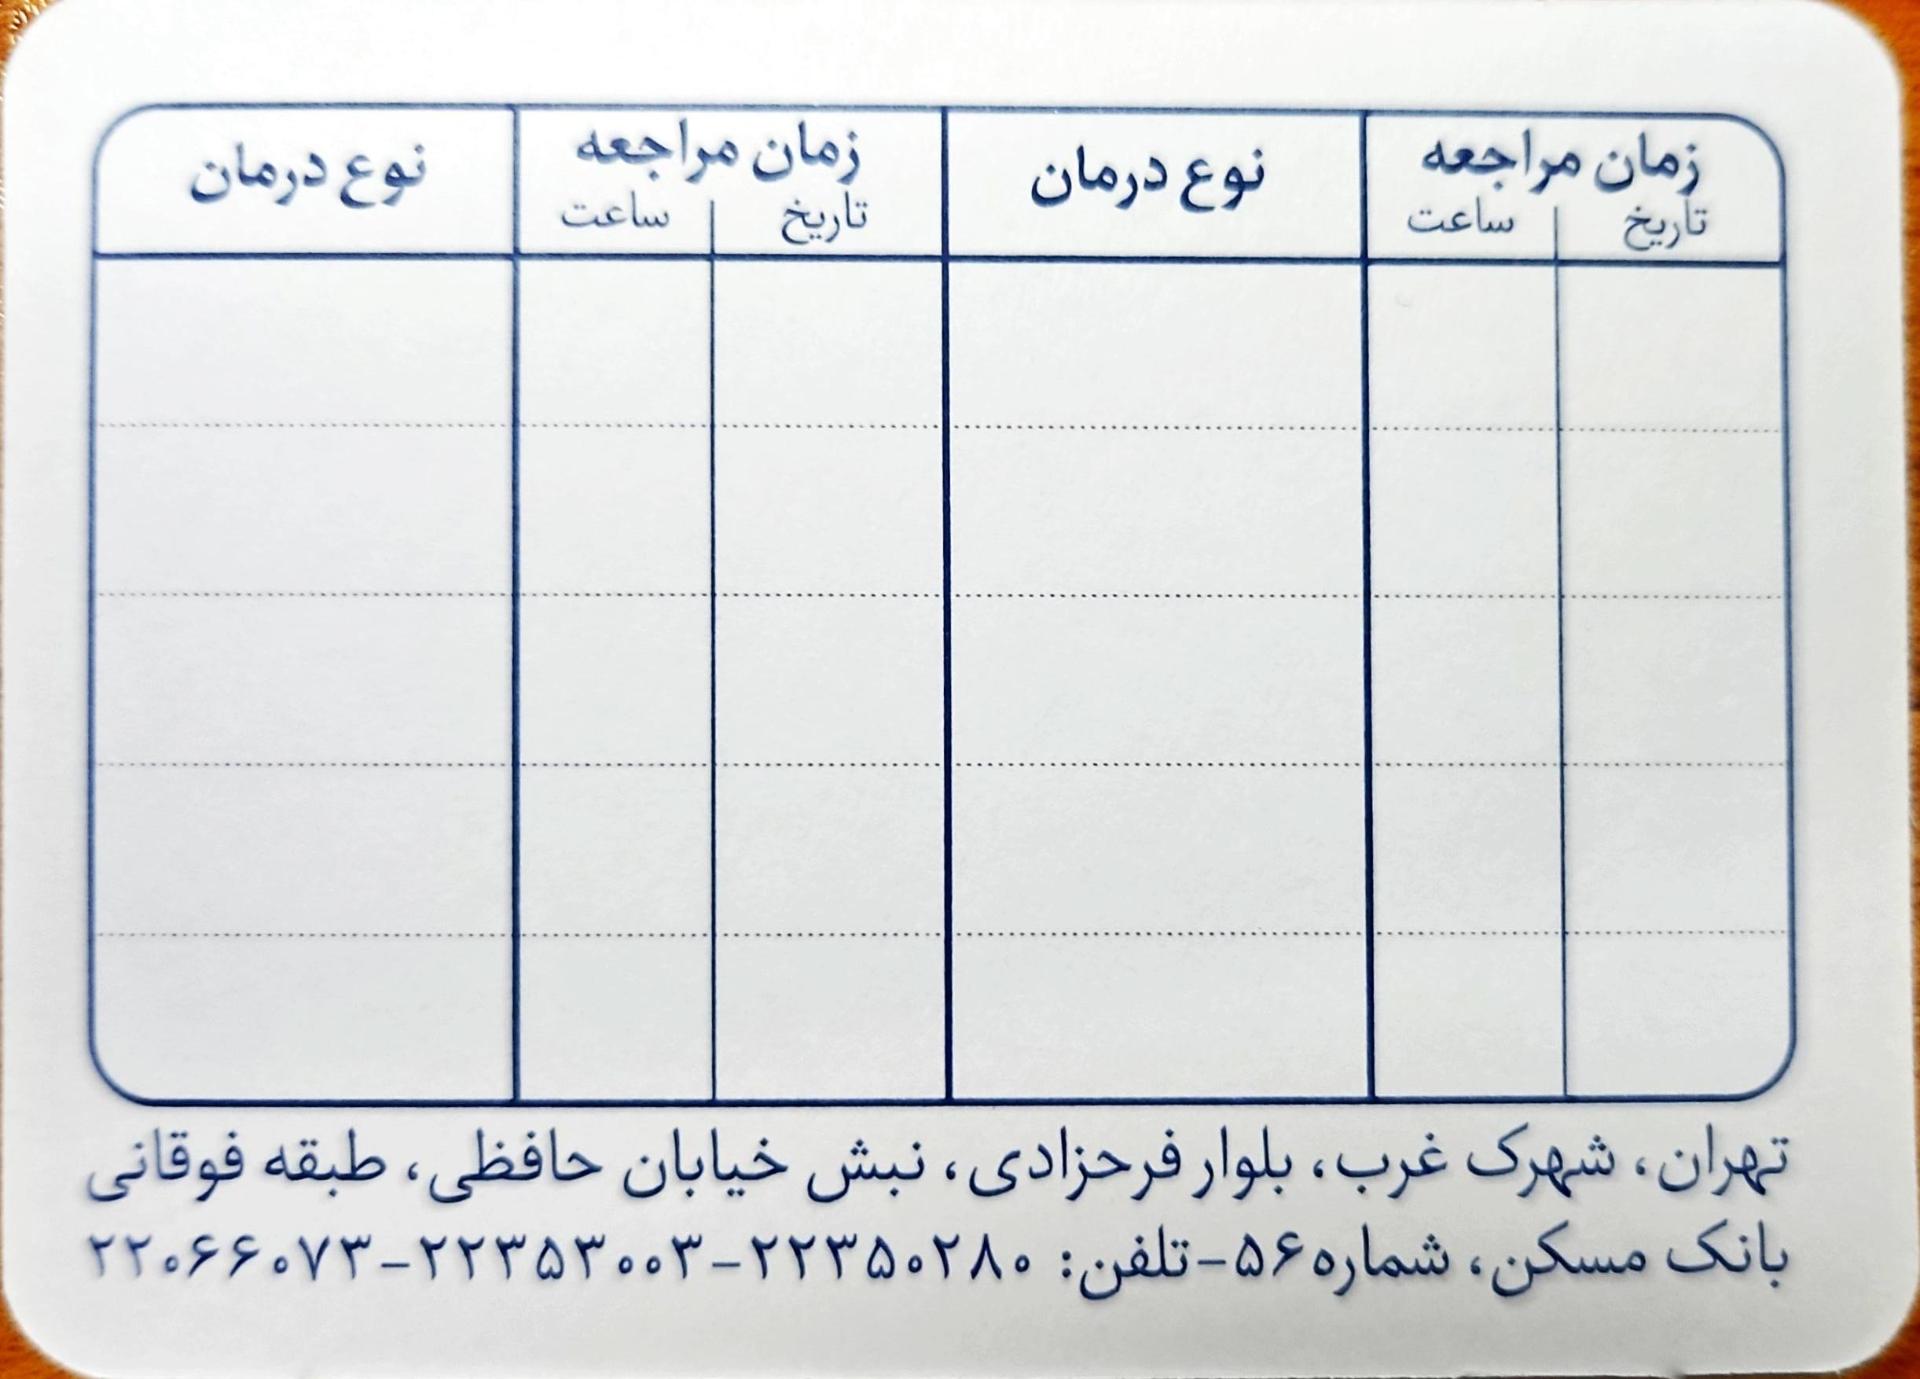 زمان مراجعه نوع درمان زمان مراجعه نوع درمان
تاریخ ساعت تاریخ ساعت
تهران، شهرک غرب، بلوار فرحزادی، نبش خیابان حافظی، طبقه فوقانی
بانک مسکن، شماره۵۶-تلفن: ۲۲۳۵۰۲۸۰-۲۲۳۵۳۰۰۳-۲۲۰۶۶۰۷۳